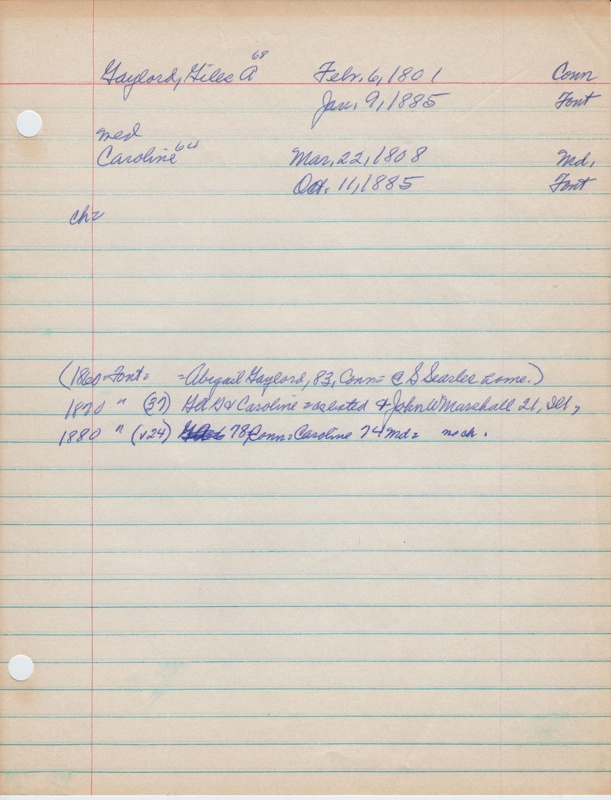 Gaylord, Giles A 68 Febr. 6, 1801 Conn
Jan. 9, 1885 Font
med
Caroline 64 Mar. 22, 1808 Md.
Oct. 11, 1885 Font
ch=
(1860=Font= =Abigail Gaylord, 83, Conn= @ S Searles home.)
1870 " (37) & Caroline =as stated & John W Marshall 21, Ill,
1880 " (v24) 78 Conn=Caroline 74 Md= no ch.